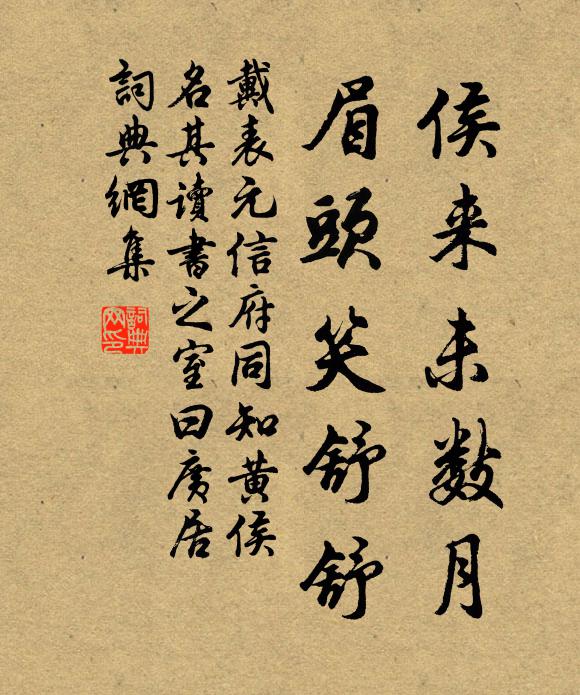 侯来未數月
眉頭笑舒舒
戴表元信府同知黄侯
名其讀書之室曰廣居
詞典網集
詞典网印